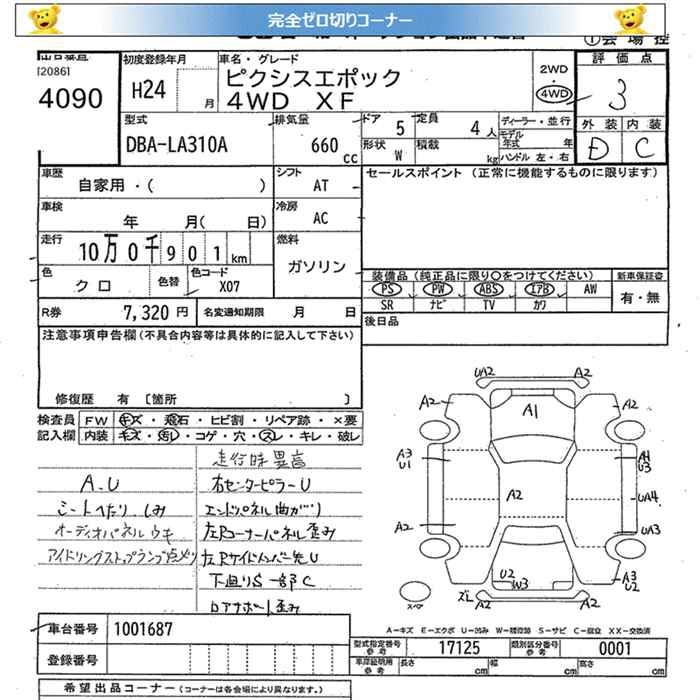 完全ゼロ切りコーナー
120861
4090
初度登録年月
H24
月
車名・グレード
ピクシスエポック
4WD XF
2WD
4WD
評価点
3
外装 内装
D C
型式
DBA-LA310A
排気量
660 cc
ドア 5
定員 4人
形状 W
積載 kg
ディーラー・並行
モデル年式 年
ハンドル 左・右
車歴
自家用・( )
シフト
AT
セールスポイント (正常に機能するものに限ります)
車検
年 月( 日)
冷房
AC
走行
10万0千901km
燃料
ガソリン
色
クロ
色替
色コード
X07
装備品(純正品に限り○をつけてください)
新車保証書
PS PW ABS エアB AW
SR ナビ TV カワ
有・無
R券 7,320円
名変通知期限 月 日
後日品
注意事項申告欄(不具合内容等は具体的に記入して下さい)
修復歴 有 〔箇所 〕
検査員 FW キズ・飛石・ヒビ割・リペア跡・×要
記入欄 内装 キズ・汚レ・コゲ・穴・スレ・キレ・破レ
走行時異音
A.U
右センターピラーU
シートへたり、しみ
エンドパネル曲がり
オーディオパネルウキ
左Rコーナーパネル歪み
アイドリングストップランプ点灯
左Rサイドメンバー先U
下廻りS一部C
ロアサポート歪み
UA2 A2
A2 A1 A2
A3
U1
A4
U3
A2
UA4
A2
UA3
U2
W3
A3
U2
ズレ A2 A2
スペア
A-キズ E-エクボ U-凹み W-補修跡 S-サビ C-腐食 XX-交換済
車台番号 1001687
登録番号
型式指定番号 参考 17125
類別区分番号 参考 0001
車庫証明用 参考 長さ cm 幅 cm 高さ cm
希望出品コーナー (コーナーは各会場により異なります。)